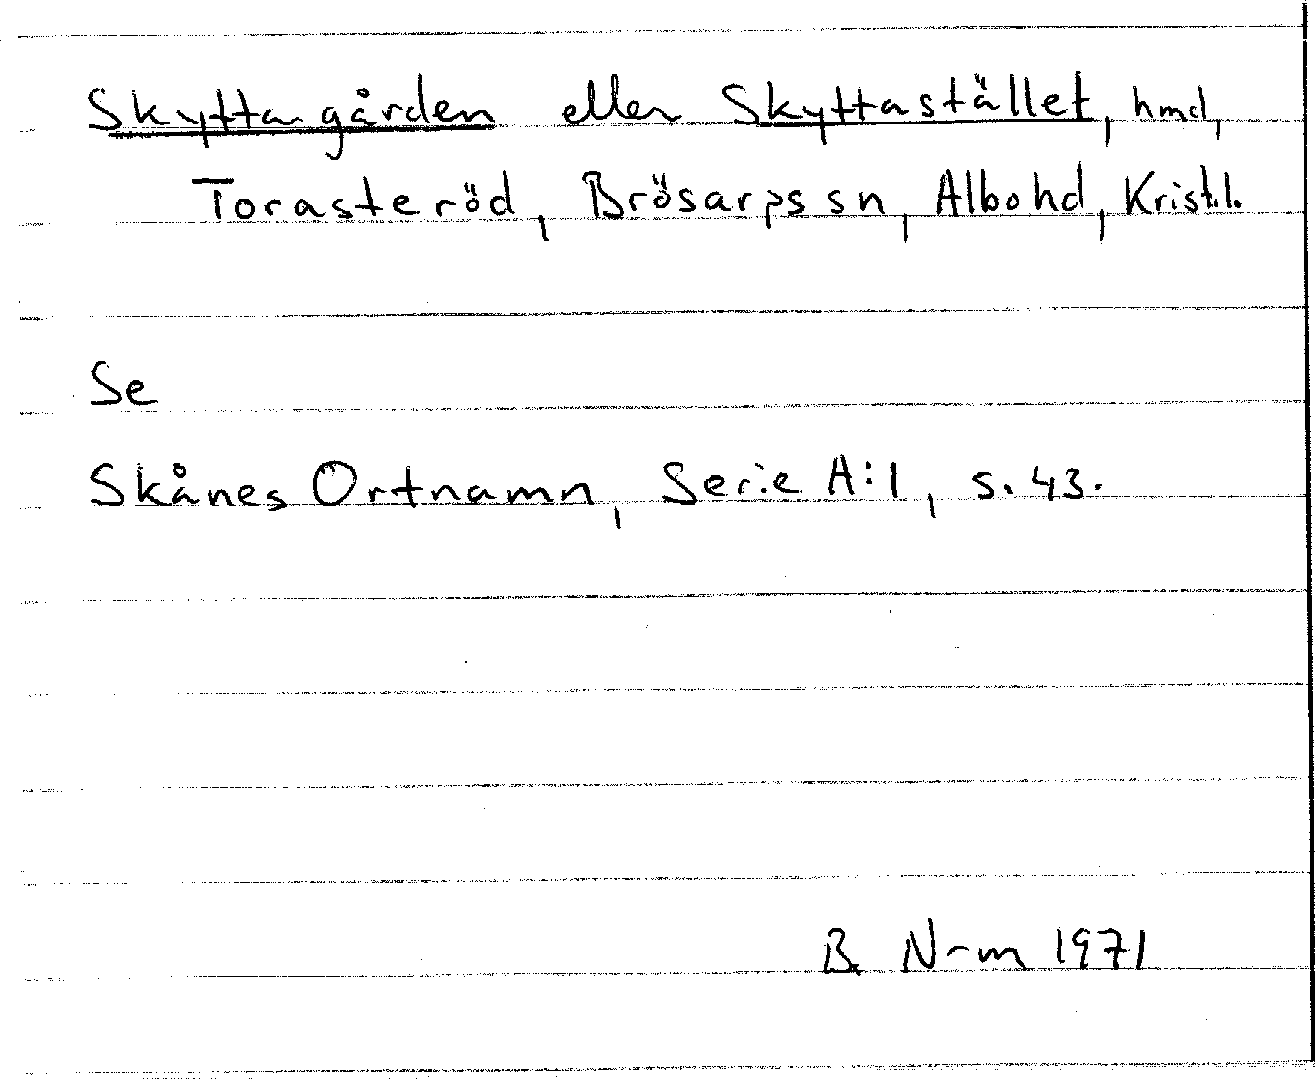 Skyttagården eller Skyttastället, hmd,
Torasteröd, Brösarps sn, Albo hd, Krist.l.
Se
Skånes Ortnamn, Serie A:1, s. 43.
B. N-m 1971